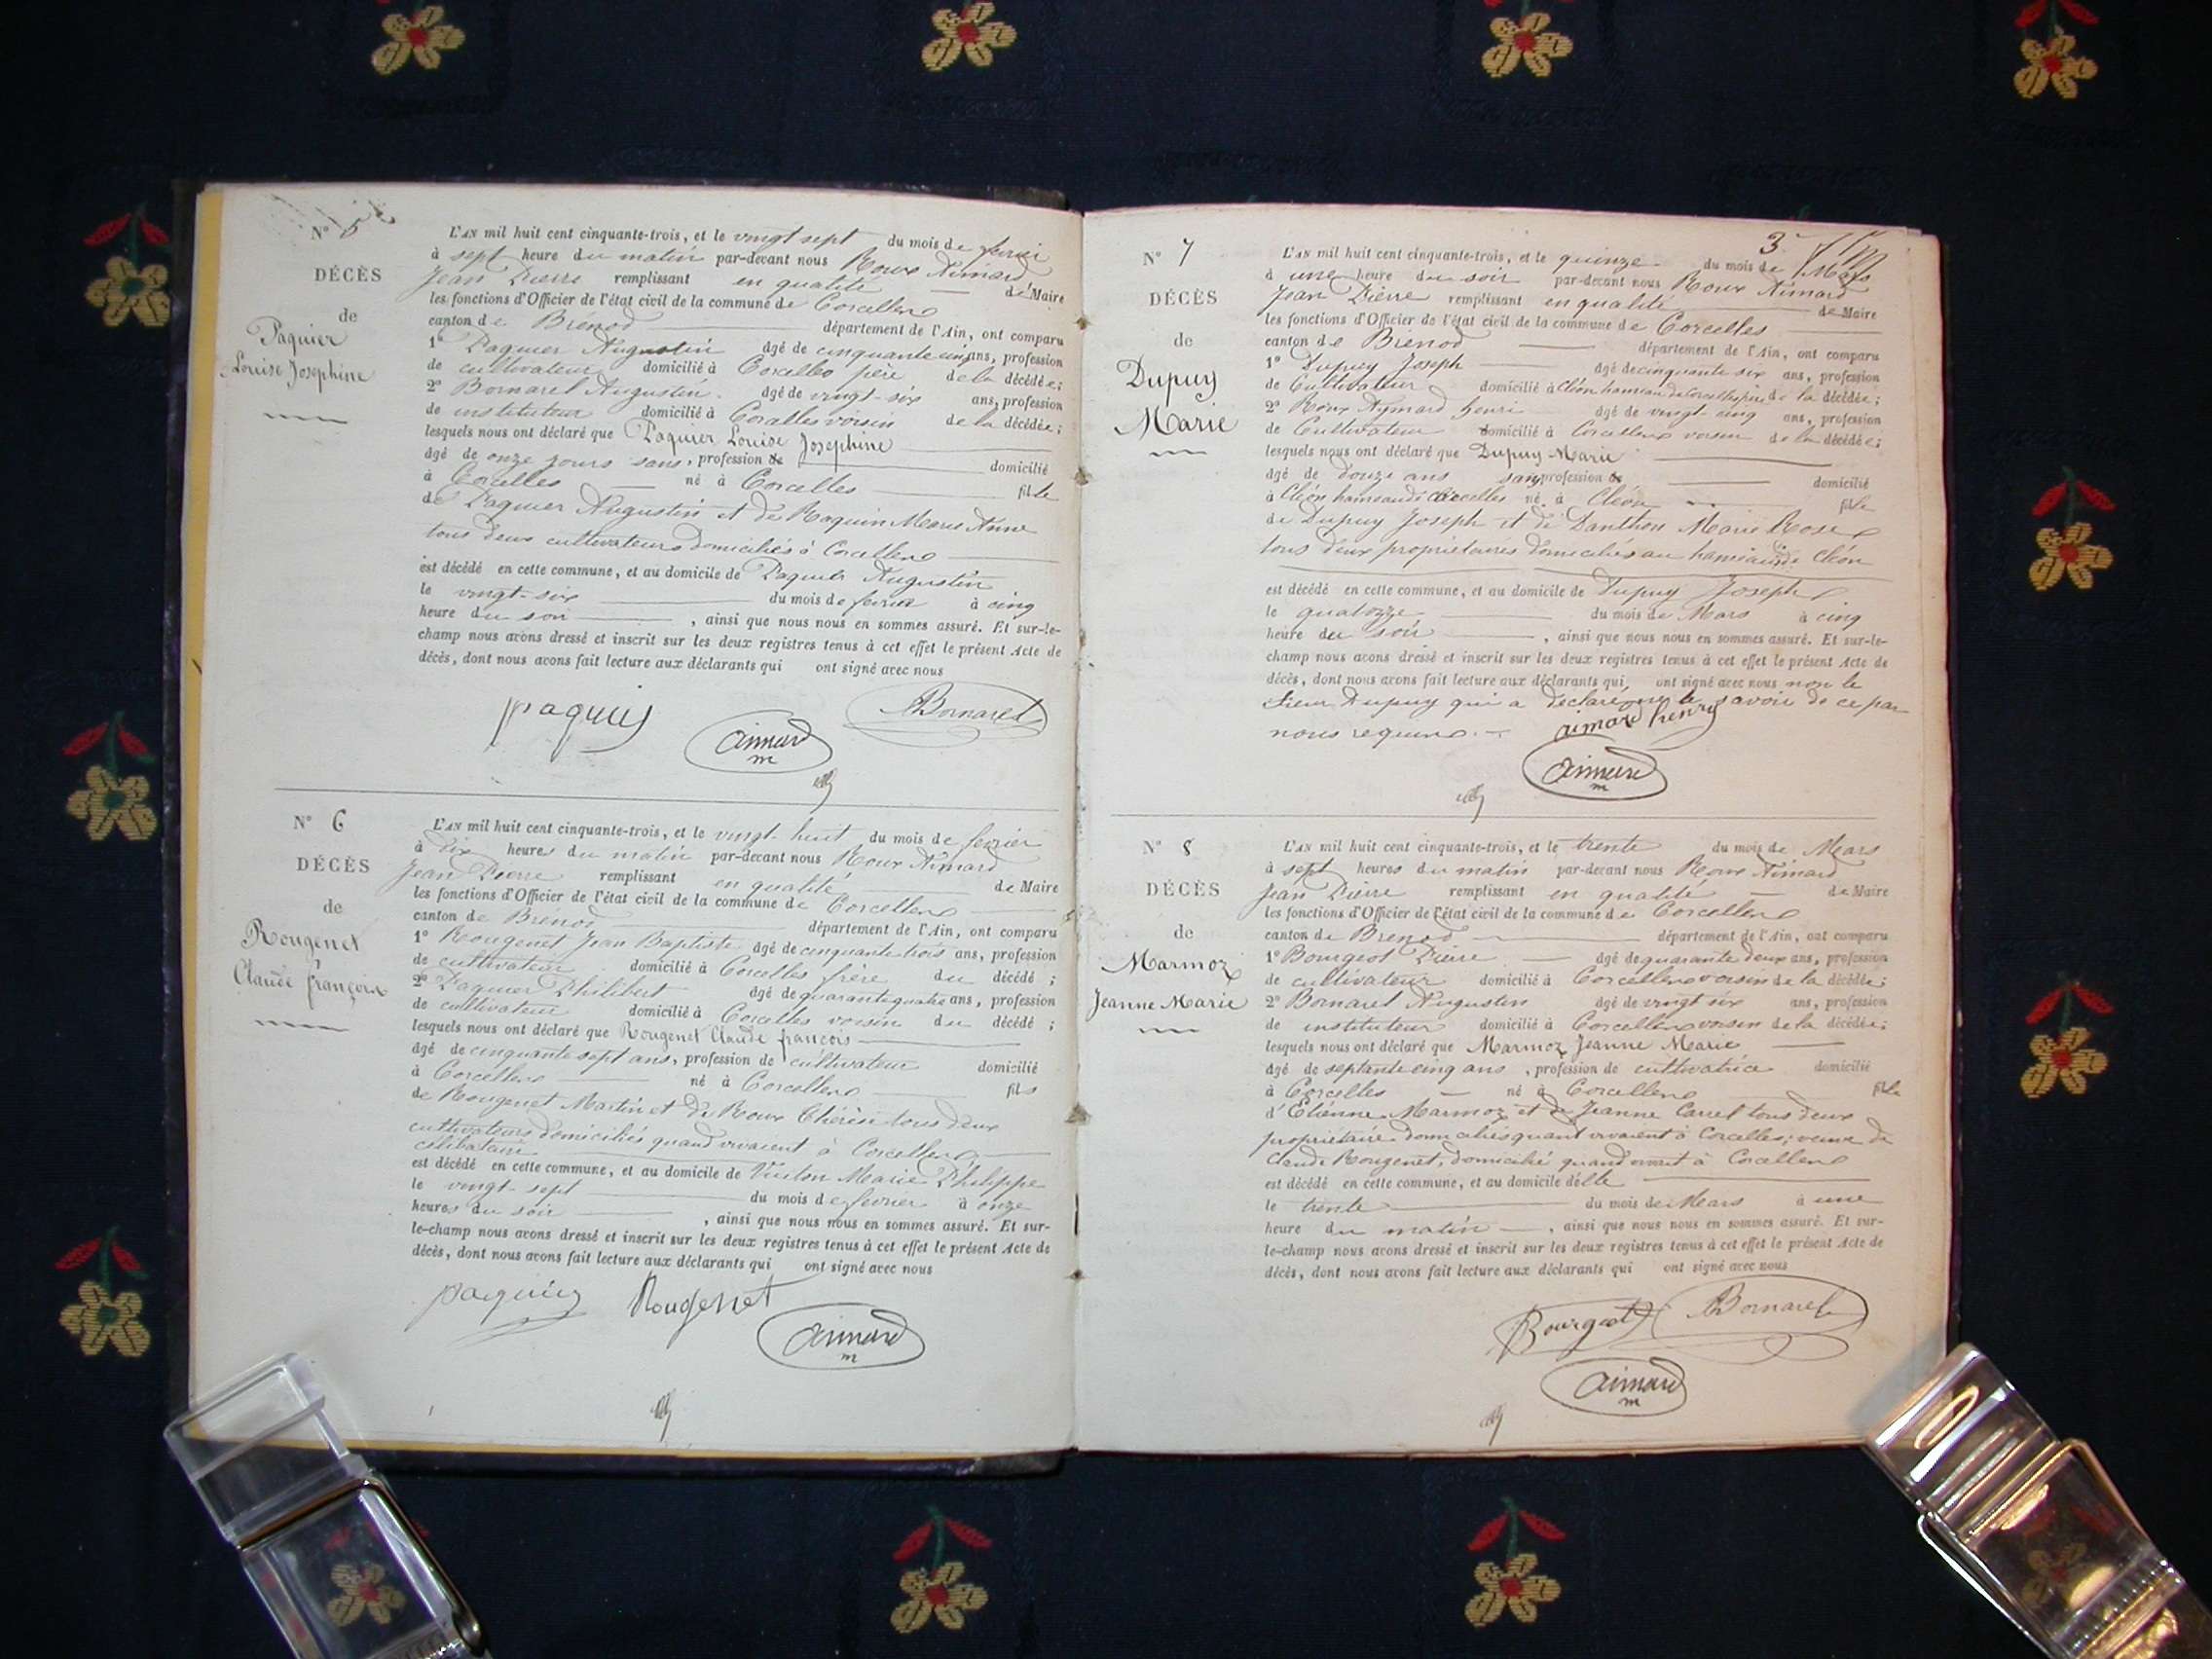 N° 5
DÉCÈS
de
Paquier
Louise Josephine
L'AN mil huit cent cinquante-trois, et le vingt sept du mois de fevrier
à sept heure du matin par-devant nous Roux Aimard
Jean Pierre remplissant en qualité de Maire
les fonctions d'Officier de l'état civil de la commune de Corcelles
canton de Brénod département de l'Ain, ont comparu
1° Paquier Augustin âgé de cinquante cinq ans, profession
de cultivateur domicilié à Corcelles père de la décédée;
2° Bornarel Augustin âgé de vingt-six ans, profession
de instituteur domicilié à Corcelles voisin de la décédée;
lesquels nous ont déclaré que Paquier Louise Josephine
âgé de onze jours sans, profession de domicilié
à Corcelles né à Corcelles fille
de Paquier Augustin et de Raquin Marie Anne
tous deux cultivateurs domiciliés à Corcelles
est décédé en cette commune, et au domicile de Paquier Augustin
le vingt-six du mois de fevrier à cinq
heure du soir , ainsi que nous nous en sommes assuré. Et sur-le-
champ nous avons dressé et inscrit sur les deux registres tenus à cet effet le présent Acte de
décès, dont nous avons fait lecture aux déclarants qui ont signé avec nous
paquier
Bornarel
aimard
m
N° 6
DÉCÈS
de
Rougenet
Claude françois
L'AN mil huit cent cinquante-trois, et le vingt huit du mois de fevrier
à dix heures du matin par-devant nous Roux Aimard
Jean Pierre remplissant en qualité de Maire
les fonctions d'Officier de l'état civil de la commune de Corcelles
canton de Brénod département de l'Ain, ont comparu
1° Rougenet Jean Baptiste âgé de cinquante trois ans, profession
de cultivateur domicilié à Corcelles frère du décédé ;
2° Paquier Philibert âgé de quarante quatre ans, profession
de cultivateur domicilié à Corcelles voisin du décédé ;
lesquels nous ont déclaré que Rougenet Claude françois
âgé de cinquante sept ans, profession de cultivateur domicilié
à Corcelles né à Corcelles fils
de Rougenet Martin et de Roux Thérèse tous deux
cultivateurs domiciliés quand vivaient à Corcelles
celibataire
est décédé en cette commune, et au domicile de Marie Philippe
le vingt-sept du mois de fevrier à onze
heures du soir , ainsi que nous nous en sommes assuré. Et sur-
le-champ nous avons dressé et inscrit sur les deux registres tenus à cet effet le présent Acte de
décès, dont nous avons fait lecture aux déclarants qui ont signé avec nous
paquier Rougenet
aimard
m
3
N° 7
DÉCÈS
de
Dupuy
Marie
L'AN mil huit cent cinquante-trois, et le quinze du mois de Mars
à une heure du soir par-devant nous Roux Aimard
Jean Pierre remplissant en qualité de Maire
les fonctions d'Officier de l'état civil de la commune de Corcelles
canton de Brénod département de l'Ain, ont comparu
1° Dupuy Joseph âgé de cinquante six ans, profession
de Cultivateur domicilié à Cléon hameau de Corcelles père de la décédée;
2° Roux Aymard henri âgé de vingt-cinq ans, profession
de Cultivateur domicilié à Corcelles voisin de la décédée;
lesquels nous ont déclaré que Dupuy Marie
âgé de douze ans sans profession de domicilié
à Cléon hameau de Corcelles né à Cléon fille
de Dupuy Joseph et de Danthon Marie Rose
tous deux propriétaires domiciliés au hameau de Cléon
est décédé en cette commune, et au domicile de Dupuy Joseph
le quatorze du mois de Mars à cinq
heure du soir , ainsi que nous nous en sommes assuré. Et sur-le-
champ nous avons dressé et inscrit sur les deux registres tenus à cet effet le présent Acte de
décès, dont nous avons fait lecture aux déclarants qui ont signé avec nous non le
Sieur Dupuy qui a déclaré ne le savoir de ce par
nous requis.
aimard henry
aimard
m
N° 8
DÉCÈS
de
Marmoz
Jeanne Marie
L'AN mil huit cent cinquante-trois, et le trente du mois de Mars
à sept heures du matin par-devant nous Roux Aimard
Jean Pierre remplissant en qualité de Maire
les fonctions d'Officier de l'état civil de la commune de Corcelles
canton de Brenod département de l'Ain, ont comparu
1° Bourgeot Pierre âgé de quarante deux ans, profession
de cultivateur domicilié à Corcelles voisin de la décédée;
2° Bornarel Augustin âgé de vingt six ans, profession
de instituteur domicilié à Corcelles voisin de la décédée;
lesquels nous ont déclaré que Marmoz Jeanne Marie
âgé de septante cinq ans , profession de cultivatrice domicilié
à Corcelles né à Corcelles fille
d'Etienne Marmoz et de Jeanne Carrel tous deux
propriétaire domiciliés quant vivaient à Corcelles; veuve de
Claude Rougenet, domicilié quand vivait à Corcelles
est décédé en cette commune, et au domicile d'elle
le trente du mois de Mars à une
heure du matin , ainsi que nous nous en sommes assuré. Et sur-
le-champ nous avons dressé et inscrit sur les deux registres tenus à cet effet le présent Acte de
décès, dont nous avons fait lecture aux déclarants qui ont signé avec nous
Bourgeot Bornarel
aimard
m